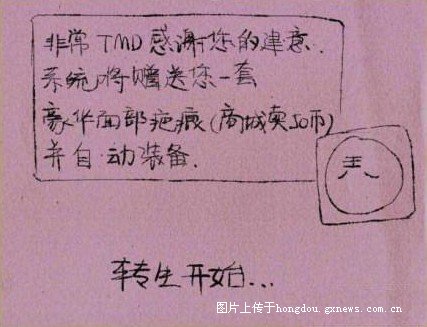 非常TMD感谢您的建意.
系统将赠送您一套
豪华面部疤痕(商城卖50币)
并自动装备.
王八
转生开始...
图片上传于hongdou.gxnews.com.cn